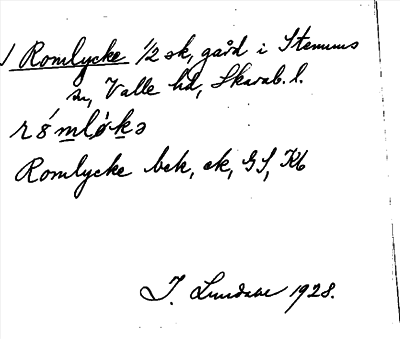 Romlycke 1/2 sk, gård i Stenums
sn, Valle hd, Skarab. l.
rómløkə
Romlycke bek, ek, GS, Kb
I. Lundahl 1928.